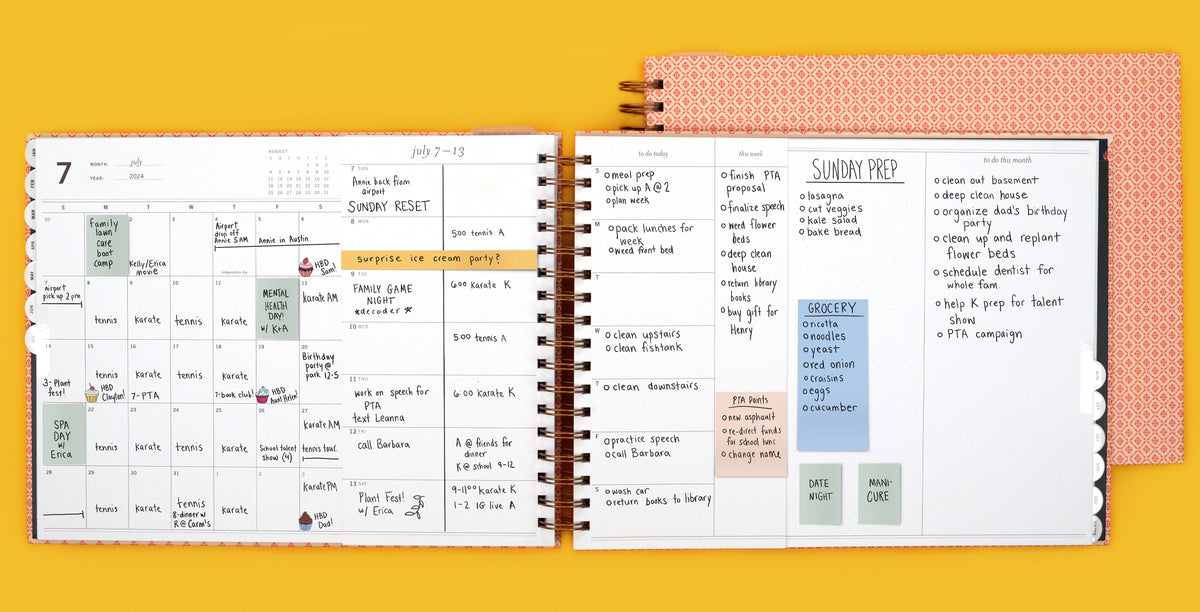 7
MONTH: july
YEAR: 2024
AUGUST
S M T W T F S
1 2 3
4 5 6 7 8 9 10
11 12 13 14 15 16 17
18 19 20 21 22 23 24
25 26 27 28 29 30 31
S M T W T F S
JAN
FEB
MAR
APR
30
family
lawn
care
boot
camp
2
Kelly/Erica
movie
3
4
Airport
drop off
Annie 5AM
independence day
5
Annie in Austin
6
HBD
Sam!
7
airport
pick up 2 pm
8
tennis
9
karate
10
tennis
11
karate
MENTAL
HEALTH
DAY!
w/ K+A
13
karate AM
14
3-Plant
fest!
15
tennis
HBD
Clayton!
16
karate
7-PTA
17
tennis
18
karate
7-book club!
19
HBD
Aunt Helen!
20
Birthday
party @
park 12-5
SPA
DAY
w/
Erica
22
tennis
23
karate
24
tennis
25
karate
26
School talent
show (4)
27
karate AM
tennis tour.
28
29
tennis
30
karate
31
tennis
8-dinner w/
R @ Carm's
1
karate
2
3
karate PM
HBD
Dad!
july 7-13
7 SUN
Annie back from
airport
SUNDAY RESET
8 MON
500 tennis A
surprise ice cream party?
9 TUE
FAMILY GAME
NIGHT
*decoder*
600 karate K
10 WED
5:00 tennis A
11 THU
work on speech for
PTA
text Leanna
6:00 karate K
12 FRI
call Barbara
A @ friends for
dinner
K @ school 9-12
13 SAT
Plant Fest!
w/ Erica
9-11:00 karate K
1-2 IG live A
to do today
S
meal prep
pick up A @ 2
plan week
M
pack lunches for
week
weed front bed
T
W
clean upstairs
clean fishtank
T
clean downstairs
F
practice speech
call Barbara
S
wash car
return books to library
this week
finish PTA
proposal
finalize speech
weed flower
beds
deep clean
house
return library
books
buy gift for
Henry
PTA Points
new asphault
re-direct funds
for school lunc
change name
SUNDAY PREP
lasagna
cut veggies
kale salad
bake bread
GROCERY
ricotta
noodles
yeast
red onion
craisins
eggs
cucumber
DATE
NIGHT
MANI-
CURE
to do this month
clean out basement
deep clean house
organize dad's birthday
party
clean up and replant
flower beds
schedule dentist for
whole fam.
help K prep for talent
show
PTA campaign